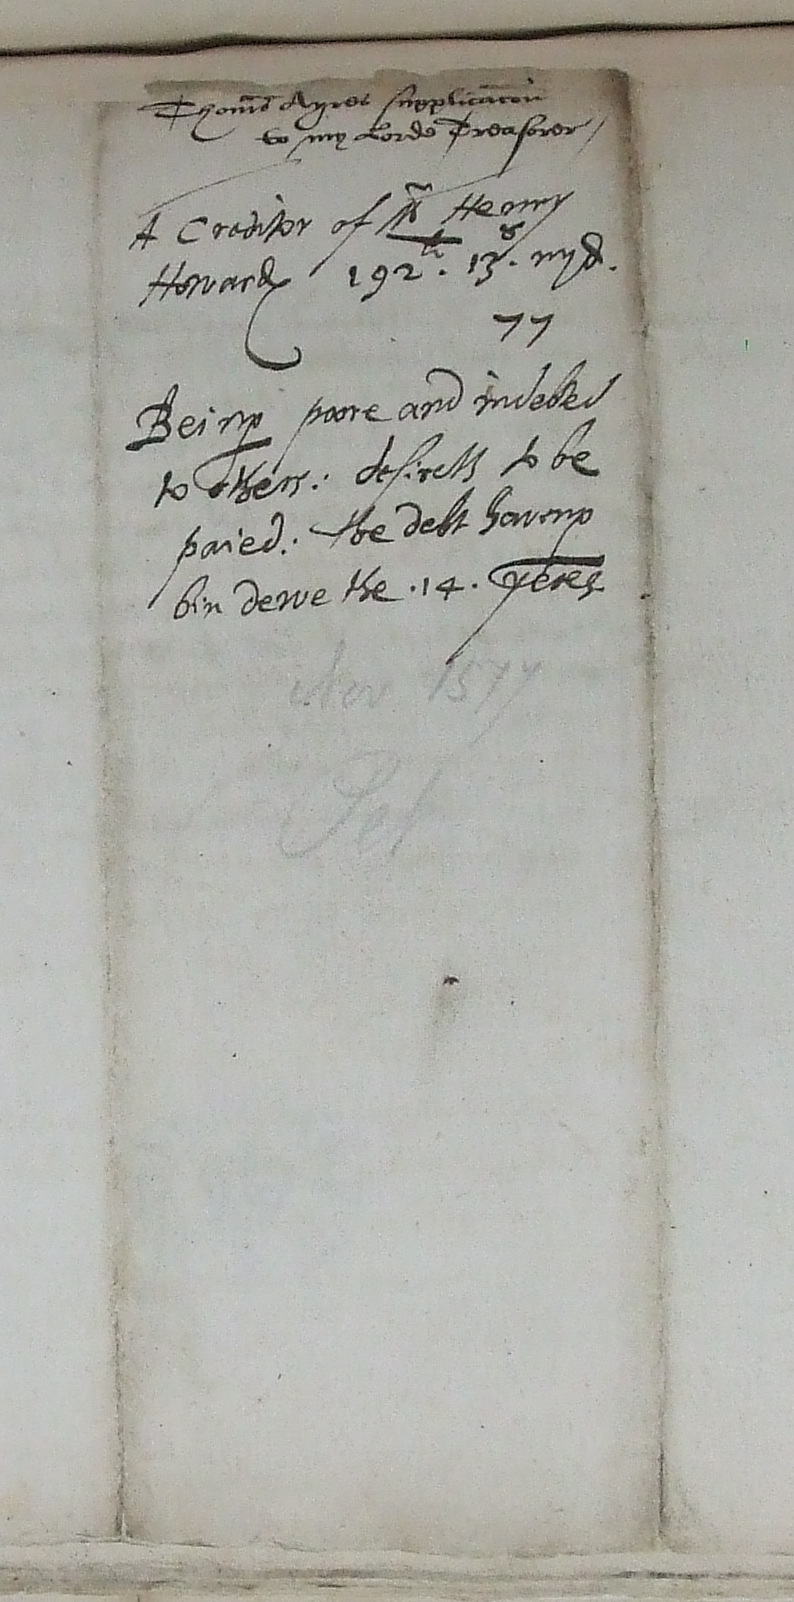 Thomas Ayres supplicacon
to my Lorde Treasorer /
A Creditor of Henry
Howard 192li. 13s. iiijd.
77
Being poore and indebted
to others: desireth to be
paied: the debt having
bin dewe the .14. yeres
Nov 1577